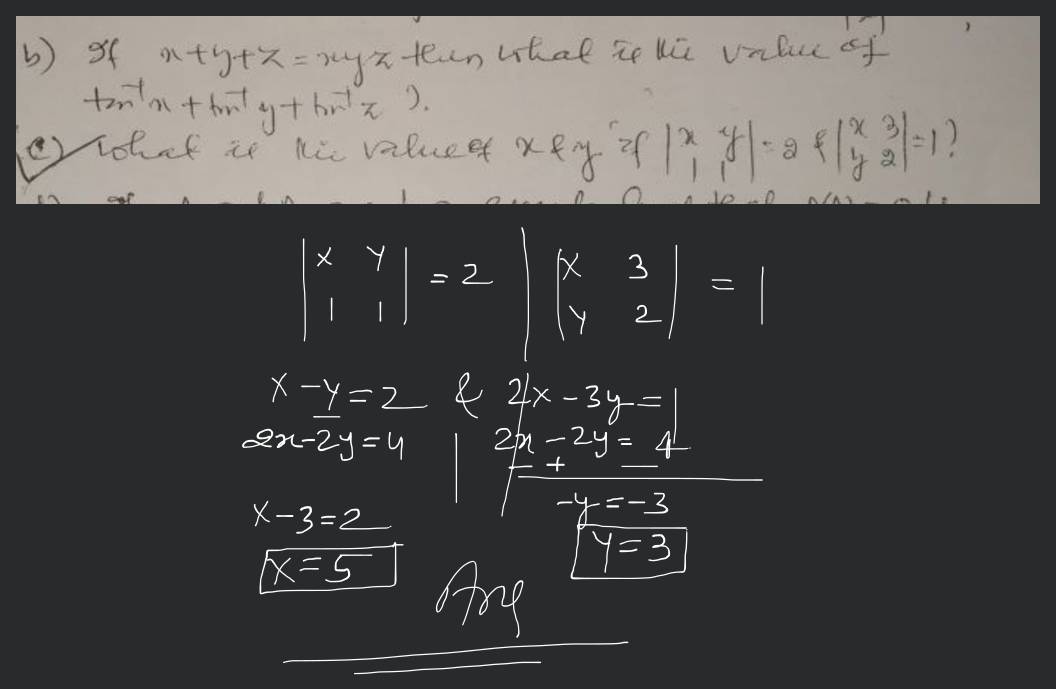 b) If x+y+z=xyz then what is the value of
tan⁻¹x + tan⁻¹y + tan⁻¹z ).
c) What is the value of x & y if |x y; 1 1| = 2 & |x 3; y 2| = 1?
|x y| = 2 | |x 3| = 1
|1 1| |y 2|
x-y=2 & 2x-3y=1
2x-2y=4 | 2x-2y=4
- + -
-y=-3
x-3=2
y=3
x=5
Ans